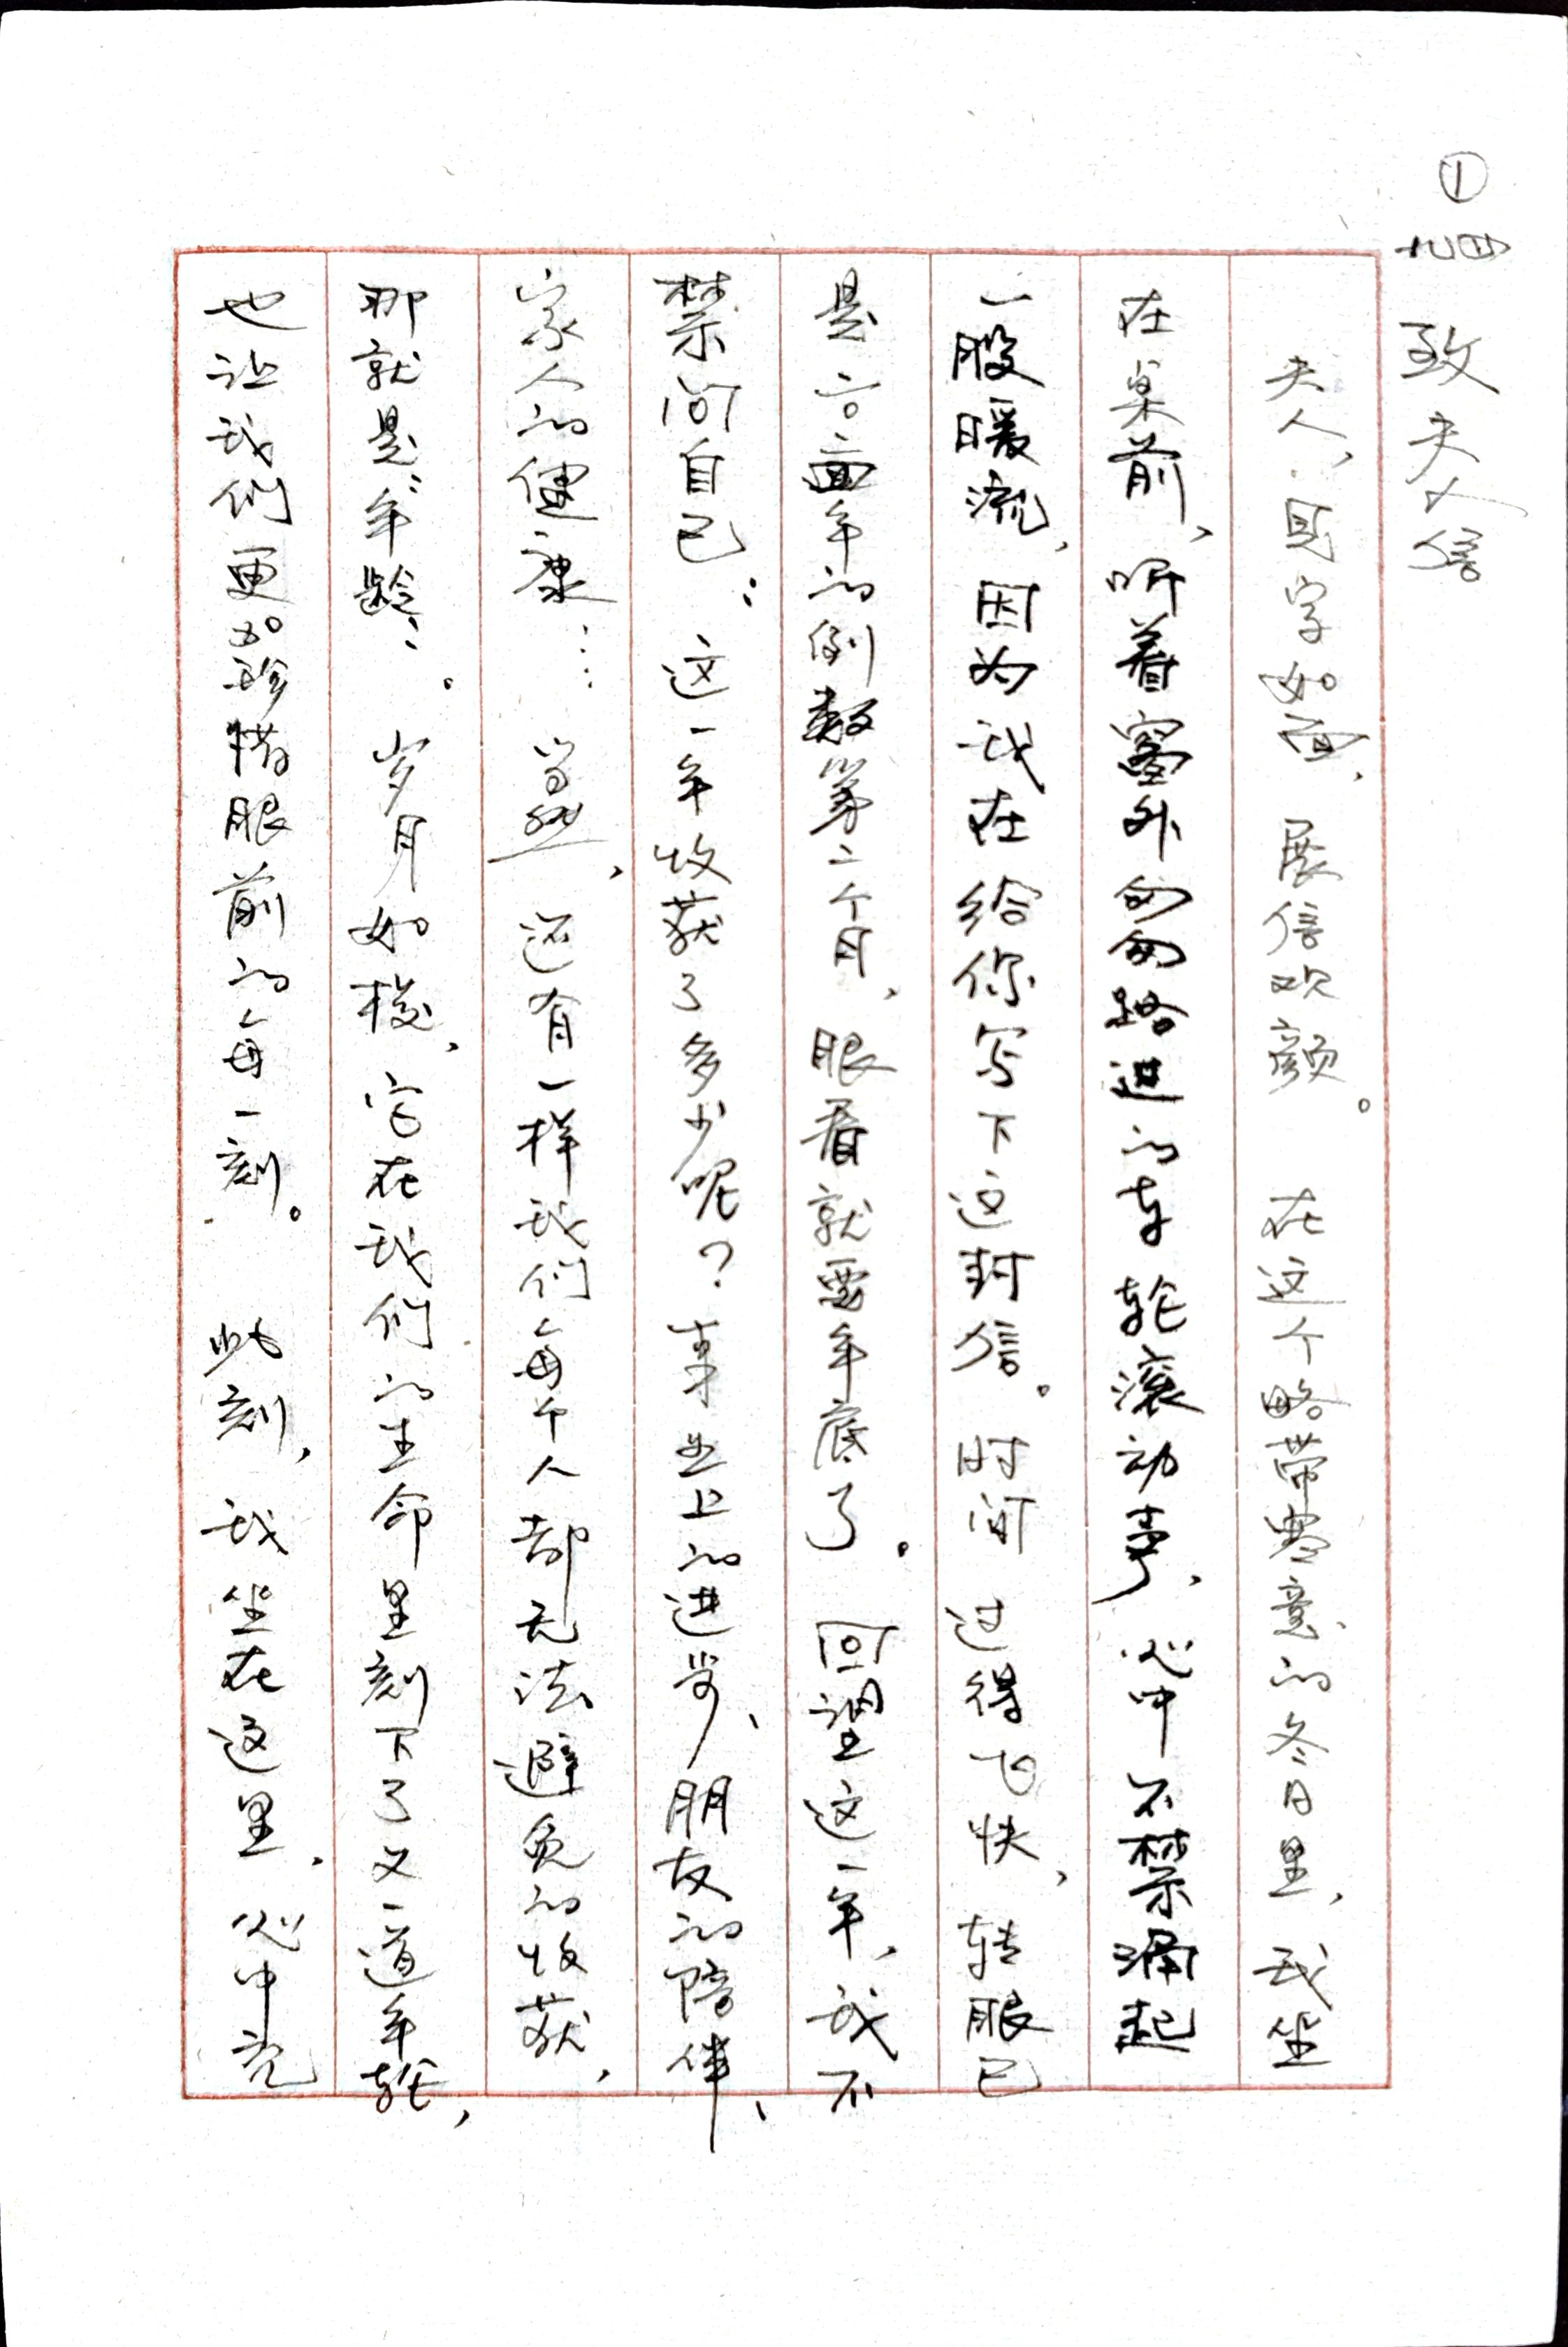 ①
九四 致夫人信
夫人，见字如面，展信欢颜。在这个略带寒意的冬日里，我坐
在桌前，听着窗外匆匆路过的车轮滚动声，心中不禁涌起
一股暖流，因为我在给你写下这封信。时间过得飞快，转眼已
是二〇年的倒数第二个月，眼看就要年底了。回望这一年，我不
禁问自己：这一年收获了多少呢？事业上的进步、朋友的陪伴、
家人的健康……当然，还有一样我们每个人都无法避免的收获，
那就是“年龄”。岁月如梭，它在我们的生命里刻下了又一道年轮，
也让我们更加珍惜眼前的每一刻。此刻，我坐在这里，心中充